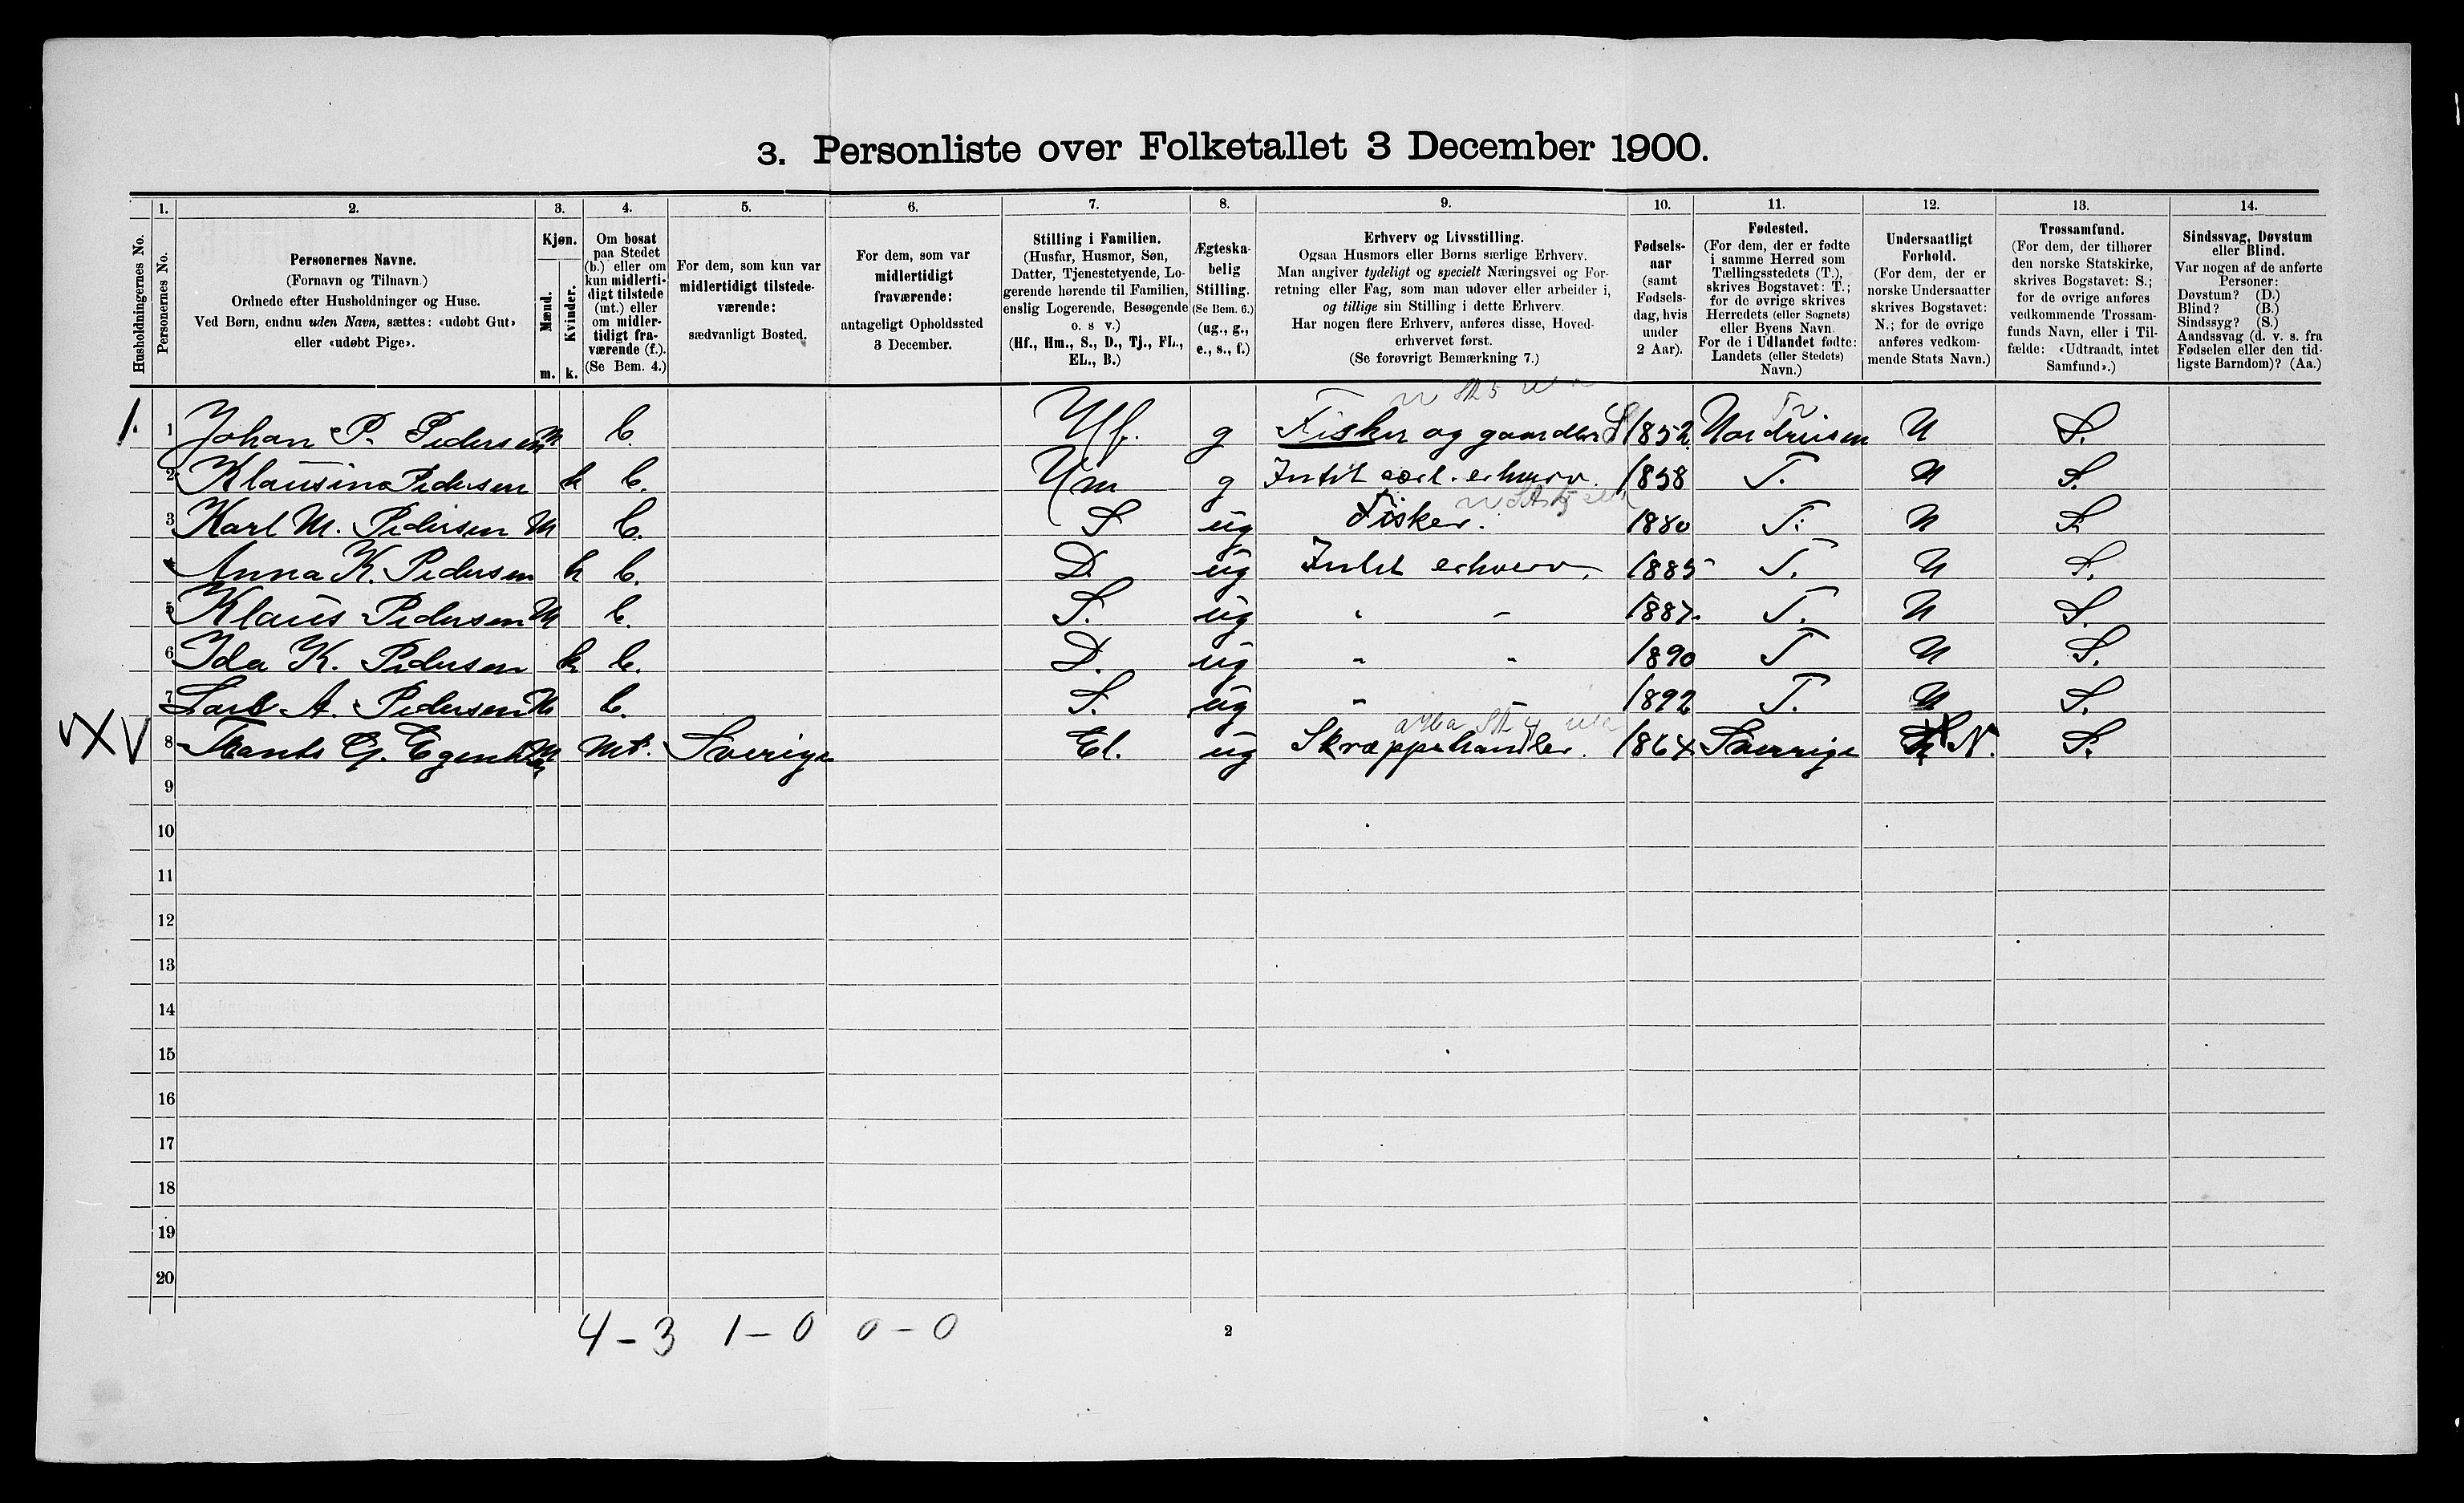 3. Personliste over Folketallet 3 December 1900.
Husholdningernes No.
1. Personernes No.
2. Personernes Navne.
(Fornavn og Tilnavn)
Ordnede efter Husholdninger og Huse.
Ved Børn, endnu uden Navn, sættes: «udøbt Gut»
eller «udøbt Pige».
3. Kjøn.
Mænd. Kvinder.
m. k.
4. Om bosat
paa Stedet
(b.) eller om
kun midlerti-
digt tilstede
(mt.) eller
om midler-
tidigt fra-
værende (f.).
(Se Bem. 4.)
5. For dem, som kun var
midlertidigt tilstede-
værende:
sædvanligt Bosted.
6. For dem, som var
midlertidigt
fraværende:
antageligt Opholdssted
3 December.
7. Stilling i Familien.
(Husfar, Husmor, Søn,
Datter, Tjenestetyende, Lo-
gerende hørende til Familien,
enslig Logerende, Besøgende
o. s v.)
(Hf., Hm., S., D., Tj., FL.,
EL., B.)
8. Ægteska-
belig
Stilling.
(Se Bem. 6.)
(ug., g.,
e., s., f.)
9. Erhverv og Livsstilling.
Ogsaa Husmors eller Børns særlige Erhverv.
Man angiver tydeligt og specielt Næringsvei og For-
retning eller Fag, som man udøver eller arbeider i,
og tillige sin Stilling i dette Erhverv.
Har nogen flere Erhverv, anføres disse, Hoved-
erhvervet først.
(Se forøvrigt Bemærkning 7.)
10. Fødsels-
aar
(samt
Fødsels-
dag, hvis
under
2 Aar).
11. Fødested.
(For dem, der er fødte
i samme Herred som
Tællingsstedets (T.),
skrives Bogstavet: T.;
for de øvrige skrives
Herredets (eller Sognets)
eller Byens Navn.
For de i Udlandet fødte:
Landets (eller Stedets)
Navn.)
12. Undersaatligt
Forhold.
(For dem, der er
norske Undersaatter
skrives Bogstavet:
N.; for de øvrige
anføres vedkom-
mende Stats Navn.)
13. Trossamfund.
(For dem, der tilhører
den norske Statskirke,
skrives Bogstavet: S.;
for de øvrige anføres
vedkommende Trossam-
funds Navn, eller i Til-
fælde: «Udtraadt, intet
Samfund».)
14. Sindssvag, Døvstum
eller Blind.
Var nogen af de anførte
Personer:
Døvstum? (D.)
Blind? (B.)
Sindssyg? (S.)
Aandssvag (d. v. s. fra
Fødselen eller den tid-
ligste Barndom)? (Aa.)
1. 1 Johan P. Pedersen m b. Hf. g Fisker og gaardbr S 1852 Nordreisen N S.
2 Klausina Pedersen k b. Hm g Intet særl. erhverv. 1858 T. N S.
3 Karl M. Pedersen m b. S ug Fisker. 1880 T. N S.
4 Anna K. Pedersen k b. D. ug Intet erhverv. 1885 T. N S.
5 Klaus Pedersen m b. S. ug " " 1887. T. N S.
6 Ida K. Pedersen k b. D. ug " " 1890 T N S.
7 Lars A. Pedersen m b. S. ug " " 1892 T. N S.
8 m mt. Sverige El. ug Skræppehandler. 1864 Sverrige N. S.
9
10
11
12
13
14
15
16
17
18
19
20
4 – 3 1 – 0 0 – 0
2